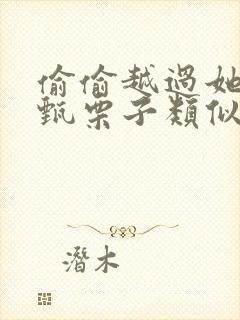 偷偷越過她
甄栗子類似
潛木